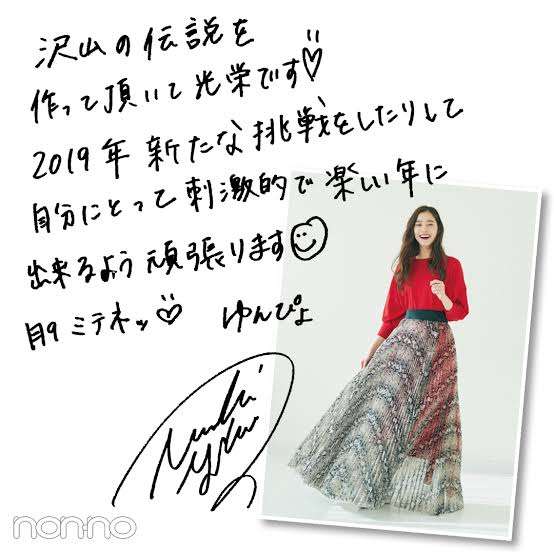 沢山の伝説を
作って頂いて光栄です♡
2019年 新たな挑戦をしたりして
自分にとって刺激的で楽しい年に
出来るよう頑張ります☺
月9ミテネッ♡ ゆんぴょ
non-no